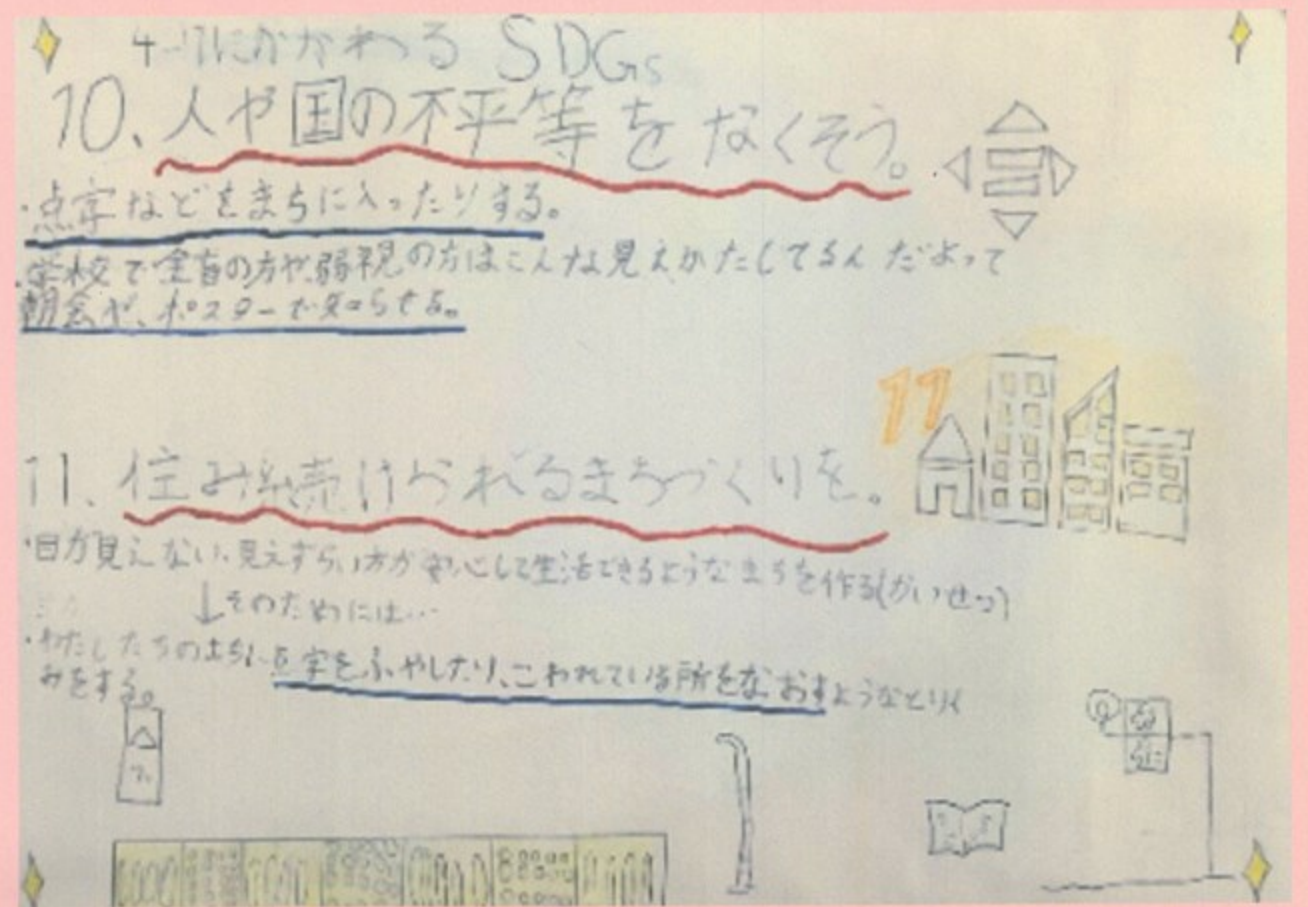 にかかわる SDGs
10、人や国の不平等をなくそう。
・点字などをまちに入ったりする。
・学校で全盲の方や、弱視の方はこんな見えかたしてるんだよって
朝会や、ポスターで知らせる。
11
11、住み続けられるまちづくりを。
・目が見えない、見えずらい方が安心して生活できるようなまちを作る(かいせつ)
↓そのためには…
・わたしたちのまちに点字をふやしたり、こわれている所をなおすようなとりく
みをする。